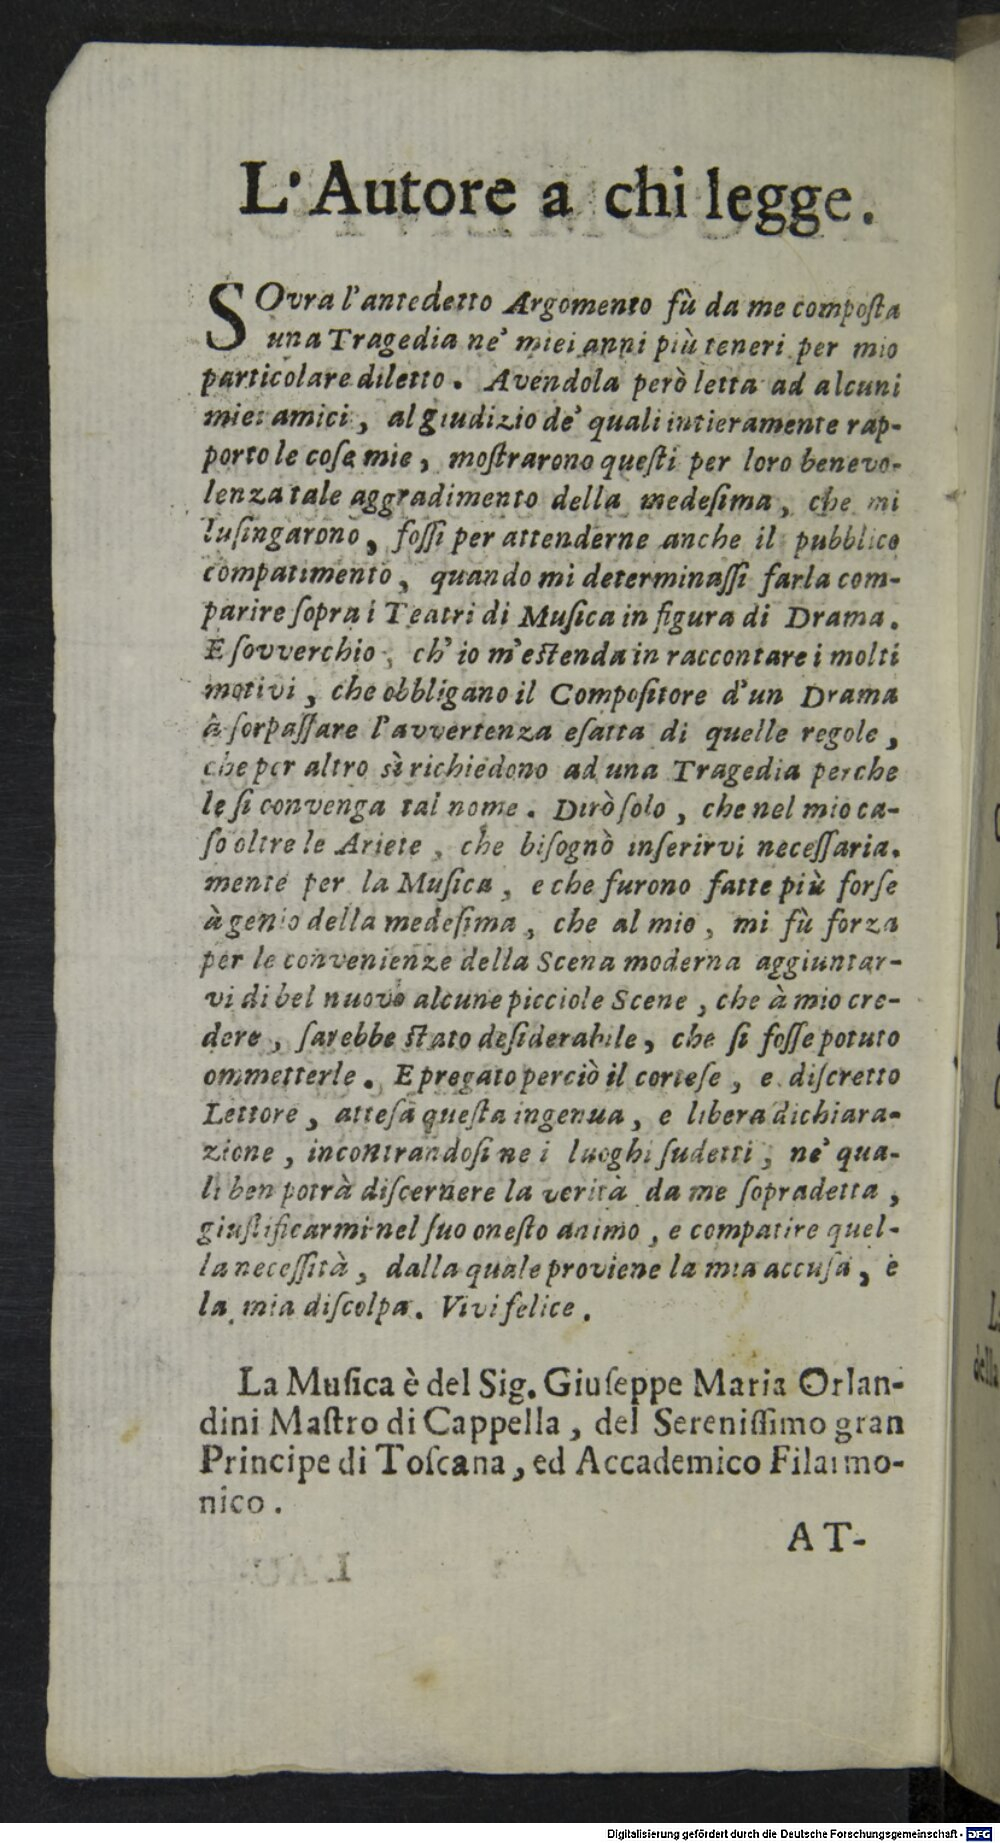 L'Autore a chi legge.
SOvra l'antedetto Argomento fù da me compoſta
una Tragedia ne' miei anni più teneri per mio
particolare diletto. Avendola però letta ad alcuni
miei amici, al giudizio de' quali intieramente rap-
porto le coſe mie, moſtrarono queſti per loro benevo-
lenza tale aggradimento della medeſima, che mi
luſingarono, foſſi per attenderne anche il pubblico
compatimento, quando mi determinaſſi farla com-
parire ſopra i Teatri di Muſica in figura di Drama.
E ſovverchio, ch' io m'eſtenda in raccontare i molti
motivi, che obbligano il Compoſitore d'un Drama
à ſorpaſſare l'avvertenza eſatta di quelle regole,
che per altro sì richiedono ad una Tragedia perche
le ſi convenga tal nome. Dirò ſolo, che nel mio ca-
ſo oltre le Ariete, che biſognò inſerirvi neceſſaria.
mente per la Muſica, e che furono fatte più forſe
à genio della medeſima, che al mio, mi fù forza
per le convenienze della Scena moderna aggiuntar-
vi di bel nuovo alcune picciole Scene, che à mio cre-
dere, ſarebbe ſtato deſiderabile, che ſi foſſe potuto
ommetterle. E pregato perciò il corteſe, e diſcretto
Lettore, atteſa queſta ingenua, e libera dichiara-
zione, incontrandoſi ne i luoghi ſudetti, ne' qua-
li ben potrà diſcernere la verità da me ſopradetta,
giuſtificarmi nel ſuo oneſto animo, e compatire quel-
la neceſſità, dalla quale proviene la mia accuſa, e
la mia diſcolpa. Vivi felice.
La Muſica è del Sig. Giuſeppe Maria Orlan-
dini Maſtro di Cappella, del Sereniſſimo gran
Principe di Toſcana, ed Accademico Filarmo-
nico.
AT-
Digitalisierung gefördert durch die Deutsche Forschungsgemeinschaft - DFG